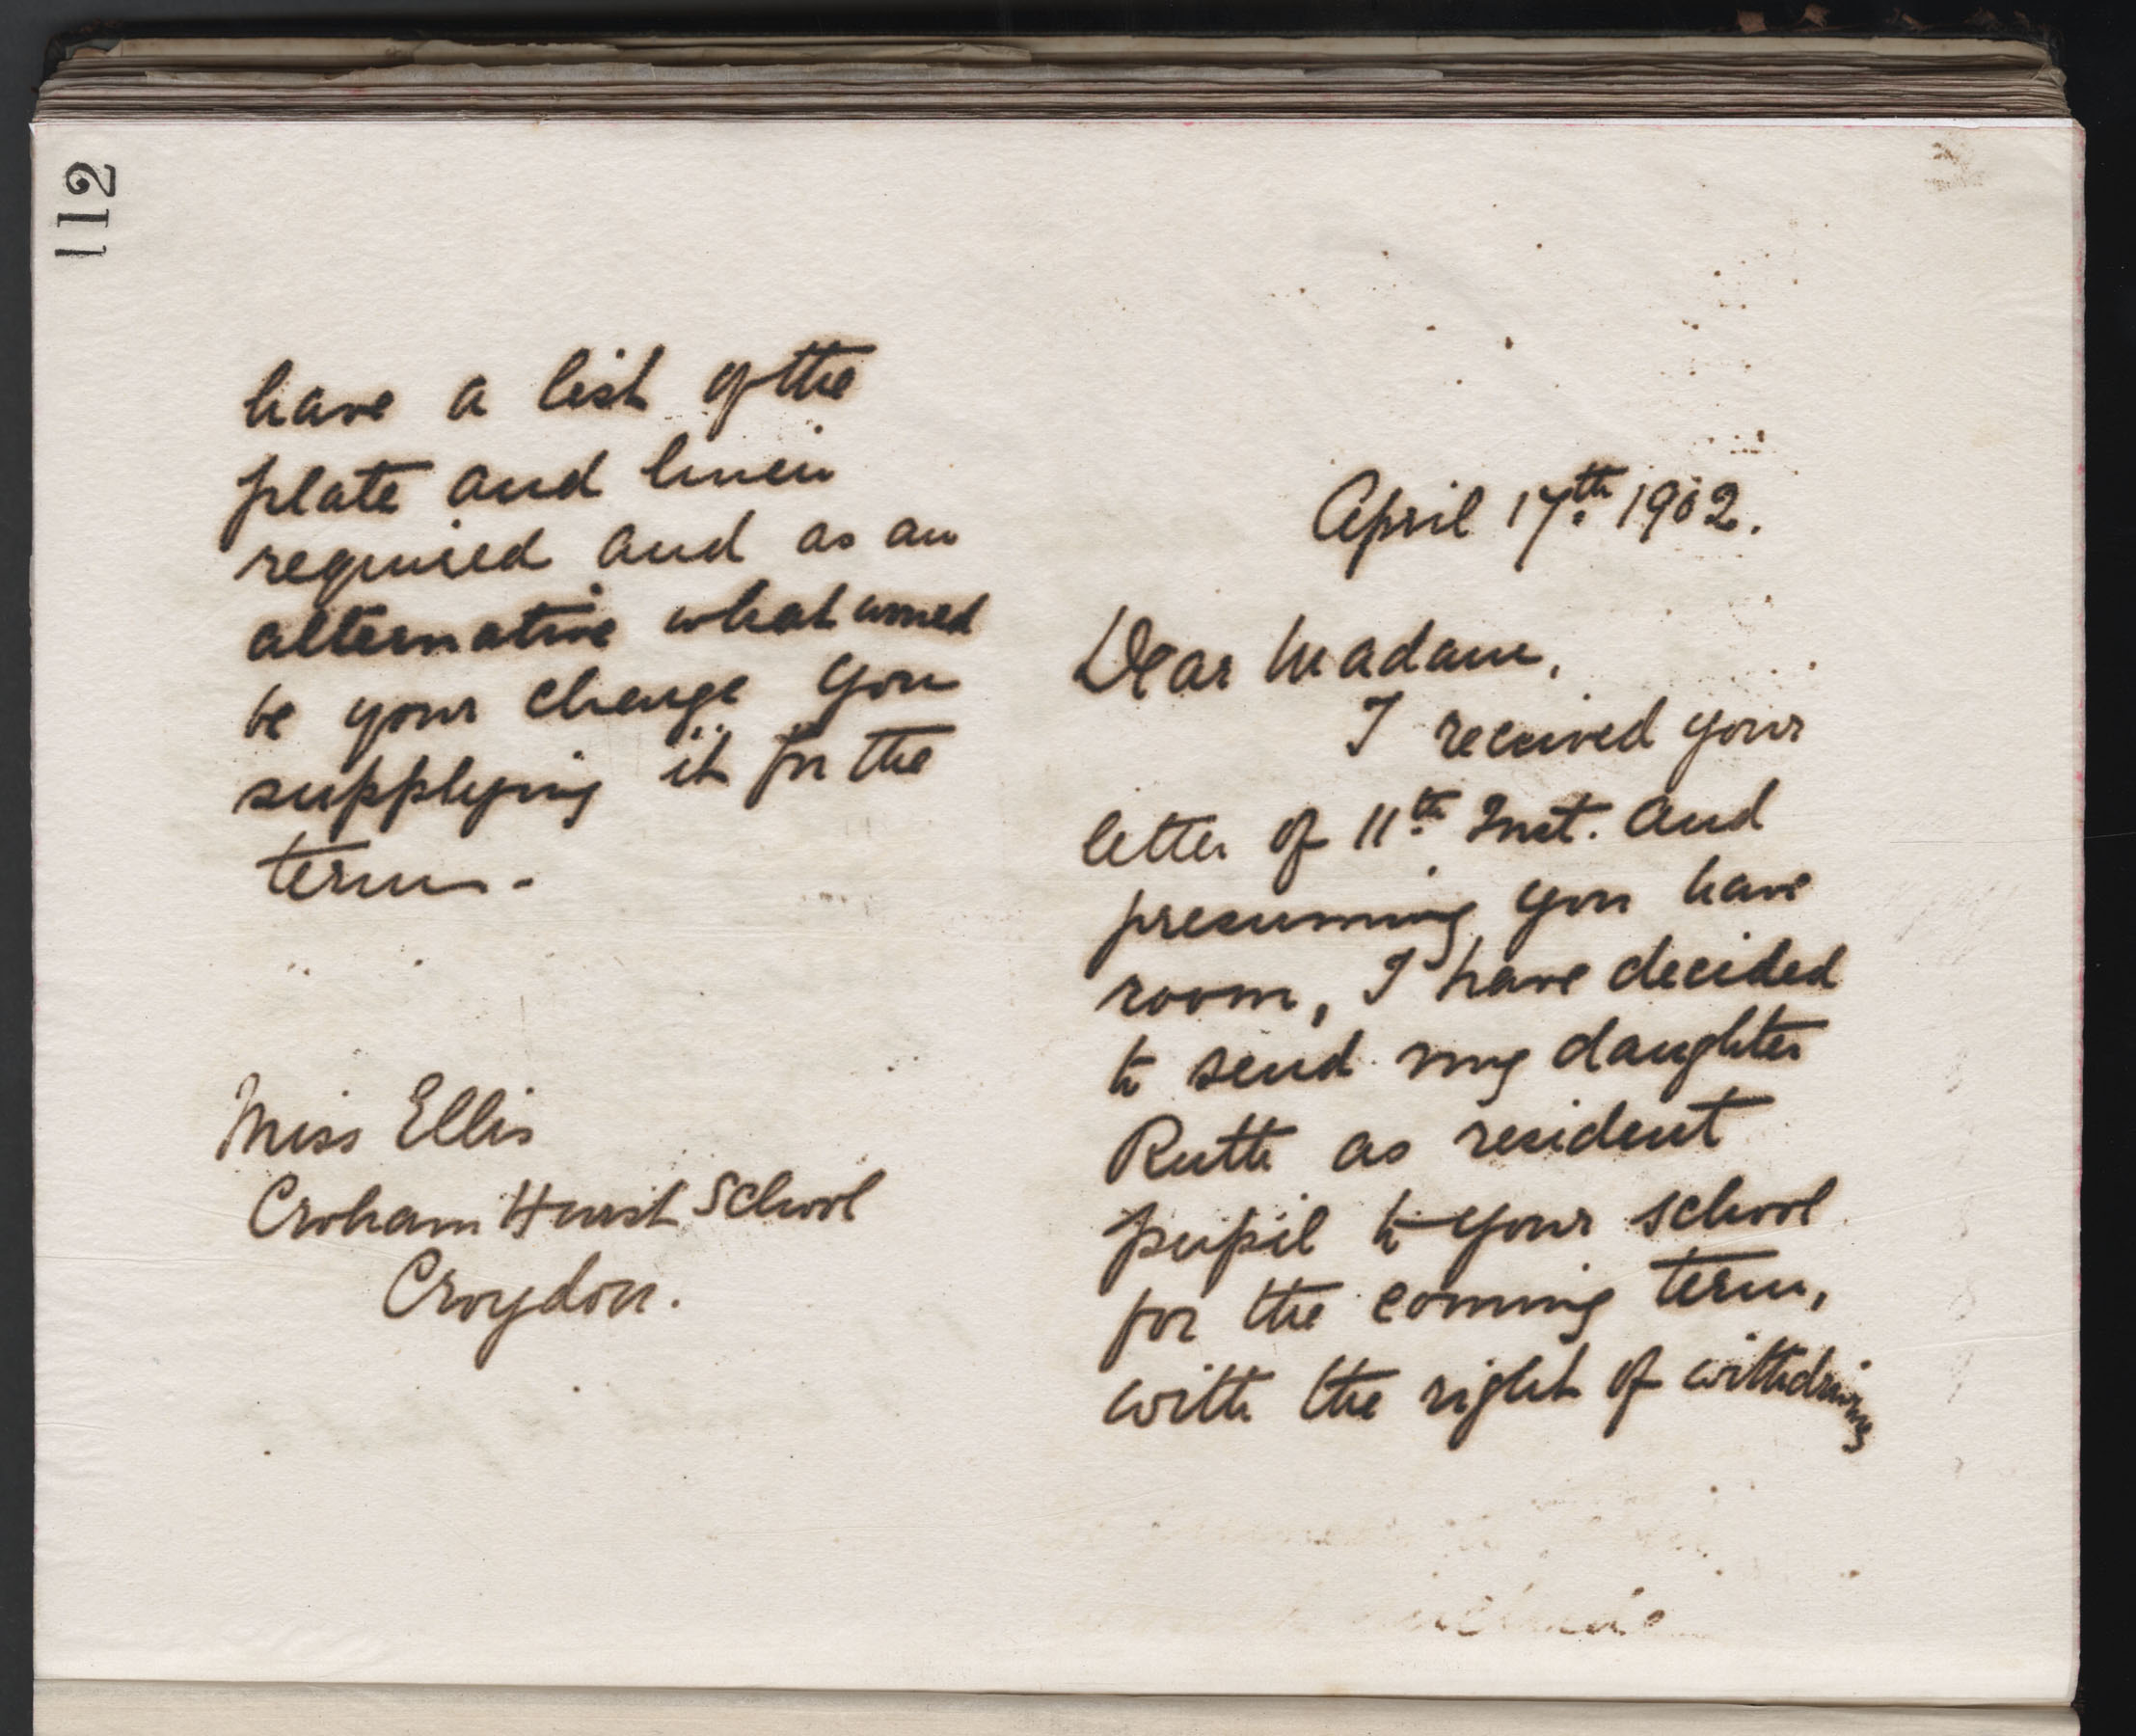 112
have a list of the
plate and linen
required and as an
alternative what would
be your charge you
supplying it for the
term.-
Miss Ellis
Croham Hurst School
Croydon.
April 17th 1902.
Dear Madam,
I received your
letter of 11th Inst. and
presuming you have
room, I have decided
to send my daughter
Ruth as resident
pupil to your school
for the coming term,
with the right of withdriwing